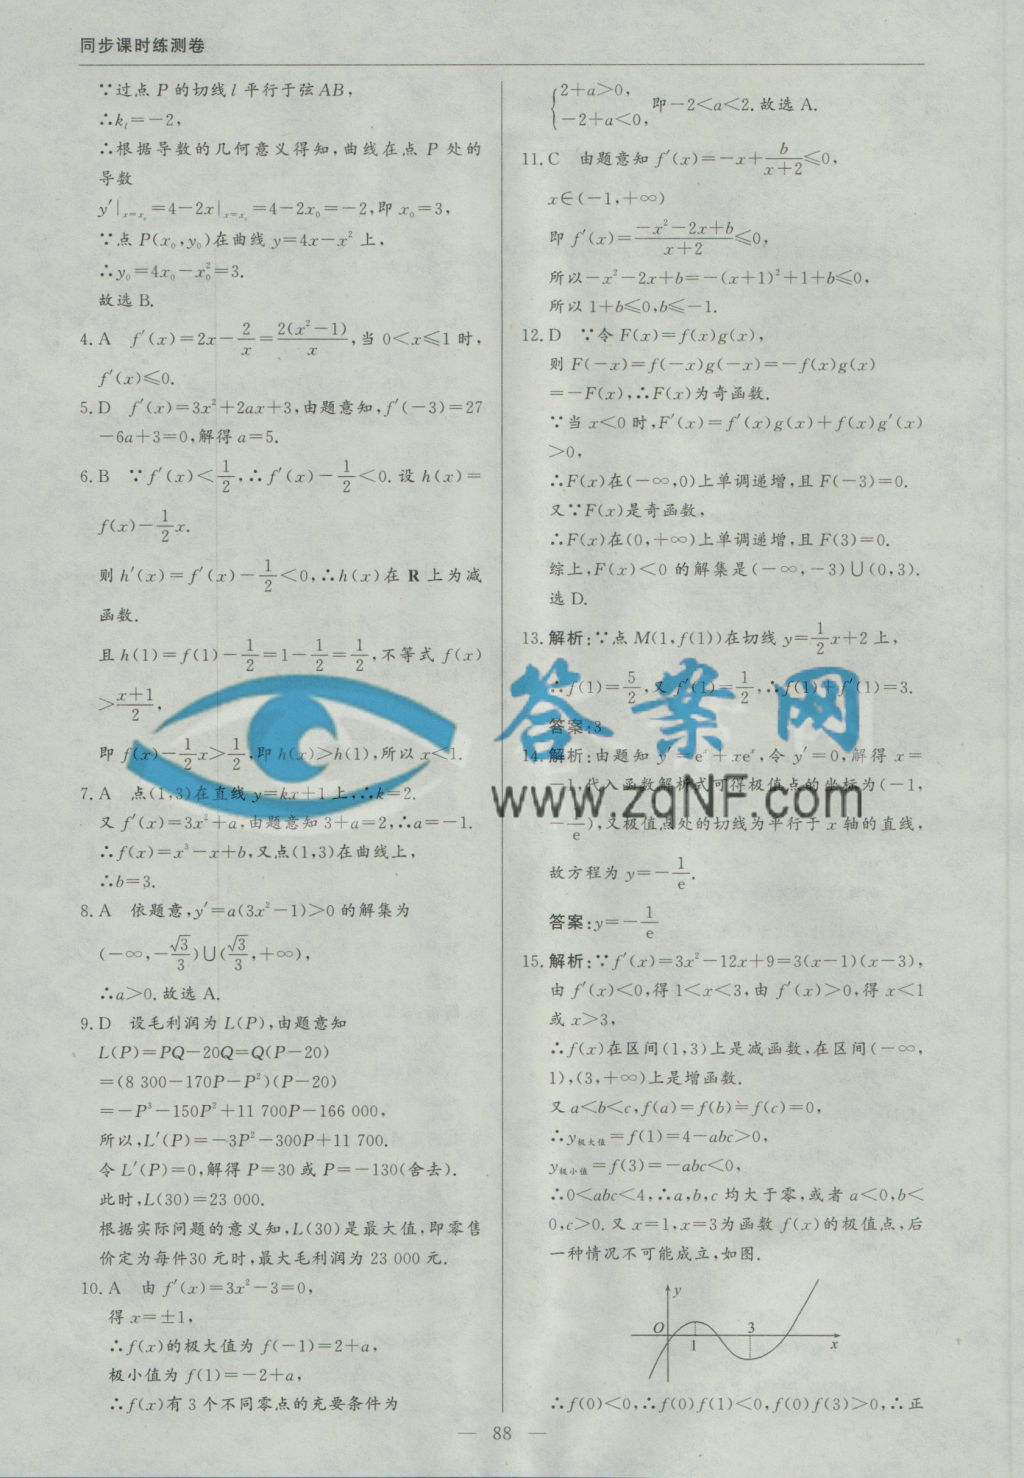 同步课时练测卷
∵过点 P 的切线 l 平行于弦AB,
∴k_l=-2,
∴根据导数的几何意义得知,曲线在点 P 处的
导数
y′|_{x=x_0}=4-2x|_{x=x_0}=4-2x_0=-2,即 x_0=3,
∵点 P(x_0,y_0)在曲线 y=4x-x^2 上,
∴y_0=4x_0-x_0^2=3.
故选 B.
4.A f′(x)=2x-2/x=2(x^2-1)/x,当 0<x≤1 时,
f′(x)≤0.
5.D f′(x)=3x^2+2ax+3,由题意知,f′(-3)=27
-6a+3=0,解得 a=5.
6.B ∵f′(x)<1/2,∴f′(x)-1/2<0.设 h(x)=
f(x)-1/2x.
则 h′(x)=f′(x)-1/2<0,∴h(x)在 R 上为减
函数.
且 h(1)=f(1)-1/2=1-1/2=1/2,不等式 f(x)
>(x+1)/2,
即 f(x)-1/2x>1/2,即 h(x)>h(1),所以 x<1.
7.A 点(1,3)在直线 y=kx+1 上,∴k=2.
又 f′(x)=3x^2+a,由题意知 3+a=2,∴a=-1.
∴f(x)=x^3-x+b,又点(1,3)在曲线上,
∴b=3.
8.A 依题意,y′=a(3x^2-1)>0 的解集为
(-∞,-√3/3)∪(√3/3,+∞),
∴a>0.故选 A.
9.D 设毛利润为 L(P),由题意知
L(P)=PQ-20Q=Q(P-20)
=(8 300-170P-P^2)(P-20)
=-P^3-150P^2+11 700P-166 000,
所以,L′(P)=-3P^2-300P+11 700.
令 L′(P)=0,解得 P=30 或 P=-130(舍去).
此时,L(30)=23 000.
根据实际问题的意义知,L(30)是最大值,即零售
价定为每件30 元时,最大毛利润为 23 000 元.
10.A 由 f′(x)=3x^2-3=0,
得 x=±1,
∴f(x)的极大值为 f(-1)=2+a,
极小值为 f(1)=-2+a,
∴f(x)有 3 个不同零点的充要条件为
{2+a>0,
-2+a<0, 即-2<a<2.故选 A.
11.C 由题意知 f′(x)=-x+b/(x+2)≤0,
x∈(-1,+∞)
即 f′(x)=(-x^2-2x+b)/(x+2)≤0,
所以-x^2-2x+b=-(x+1)^2+1+b≤0,
所以 1+b≤0,b≤-1.
12.D ∵令 F(x)=f(x)g(x),
则 F(-x)=f(-x)g(-x)=-f(x)g(x)
=-F(x),∴F(x)为奇函数.
∵当 x<0 时,F′(x)=f′(x)g(x)+f(x)g′(x)
>0,
∴F(x)在(-∞,0)上单调递增,且 F(-3)=0.
又∵F(x)是奇函数,
∴F(x)在(0,+∞)上单调递增,且 F(3)=0.
综上,F(x)<0 的解集是(-∞,-3)∪(0,3).
选 D.
13.解析:∵点 M(1,f(1))在切线 y=1/2x+2 上,
∴f(1)=5/2,又 f′(1)=1/2,∴f(1)+f′(1)=3.
答案:3
14.解析:由题知 y′=e^x+xe^x,令 y′=0,解得 x=
-1,代入函数解析式可得极值点的坐标为(-1,
-1/e),又极值点处的切线为平行于 x 轴的直线,
故方程为 y=-1/e.
答案:y=-1/e
15.解析:∵f′(x)=3x^2-12x+9=3(x-1)(x-3),
由 f′(x)<0,得 1<x<3,由 f′(x)>0,得 x<1
或 x>3,
∴f(x)在区间(1,3)上是减函数,在区间(-∞,
1),(3,+∞)上是增函数.
又 a<b<c,f(a)=f(b)=f(c)=0,
∴y极大值=f(1)=4-abc>0,
y极小值=f(3)=-abc<0,
∴0<abc<4,∴a,b,c 均大于零,或者 a<0,b<
0,c>0.又 x=1,x=3为函数 f(x)的极值点,后
一种情况不可能成立,如图.
y
O
1
3
x
∴f(0)<0,∴f(0)f(1)<0,f(0)f(3)>0,∴正
— 88 —
答案网
www.zqNF.com